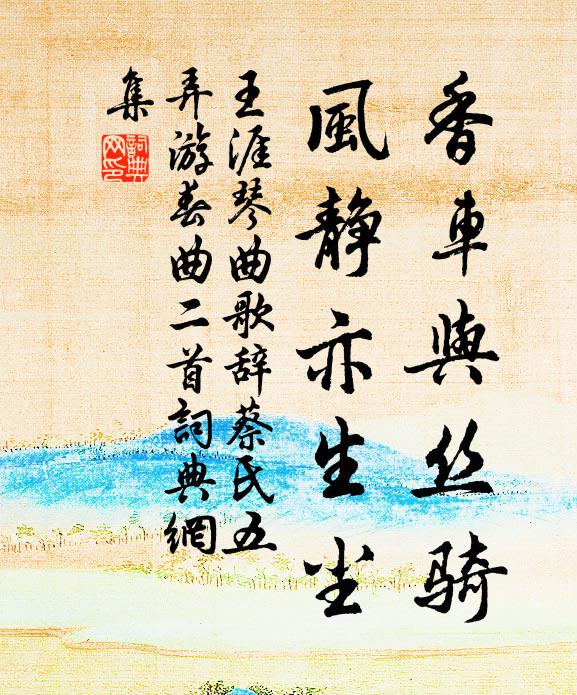 香車與丝騎
風静亦生尘
王涯琴曲歌辞蔡氏五
弄游春曲二首詞典網
集
詞典
网印